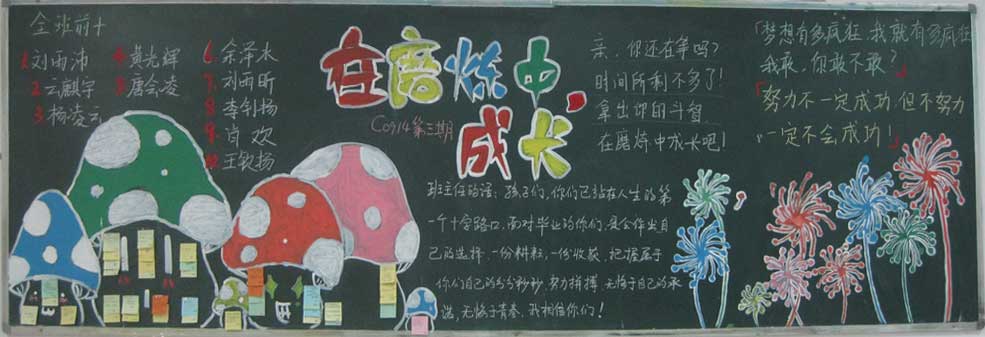 全班前十
1 刘雨沛
2 云麒宇
3 杨凌云
4 黄光辉
5 唐会凌
6. 余泽水
7. 刘雨昕
8 李钊扬
9 肖欢
10. 王钦扬
在磨炼中,
成长
C0914第三期
亲，你还在等吗？
时间所剩不多了！
拿出你的斗智
在磨炼中成长吧！
班主任的话：孩子们，你们已站在人生的第
一个十字路口，面对毕业的你们，是会作出自
己的选择，一份耕耘，一份收获，把握属于
你们自己的分分秒秒，努力拼搏，无悔于自己的承
诺，无悔于青春，我相信你们！
「梦想有多疯狂，我就有多疯狂
我敢，你敢不敢？」
「努力不一定成功，但不努力
一定不会成功！」